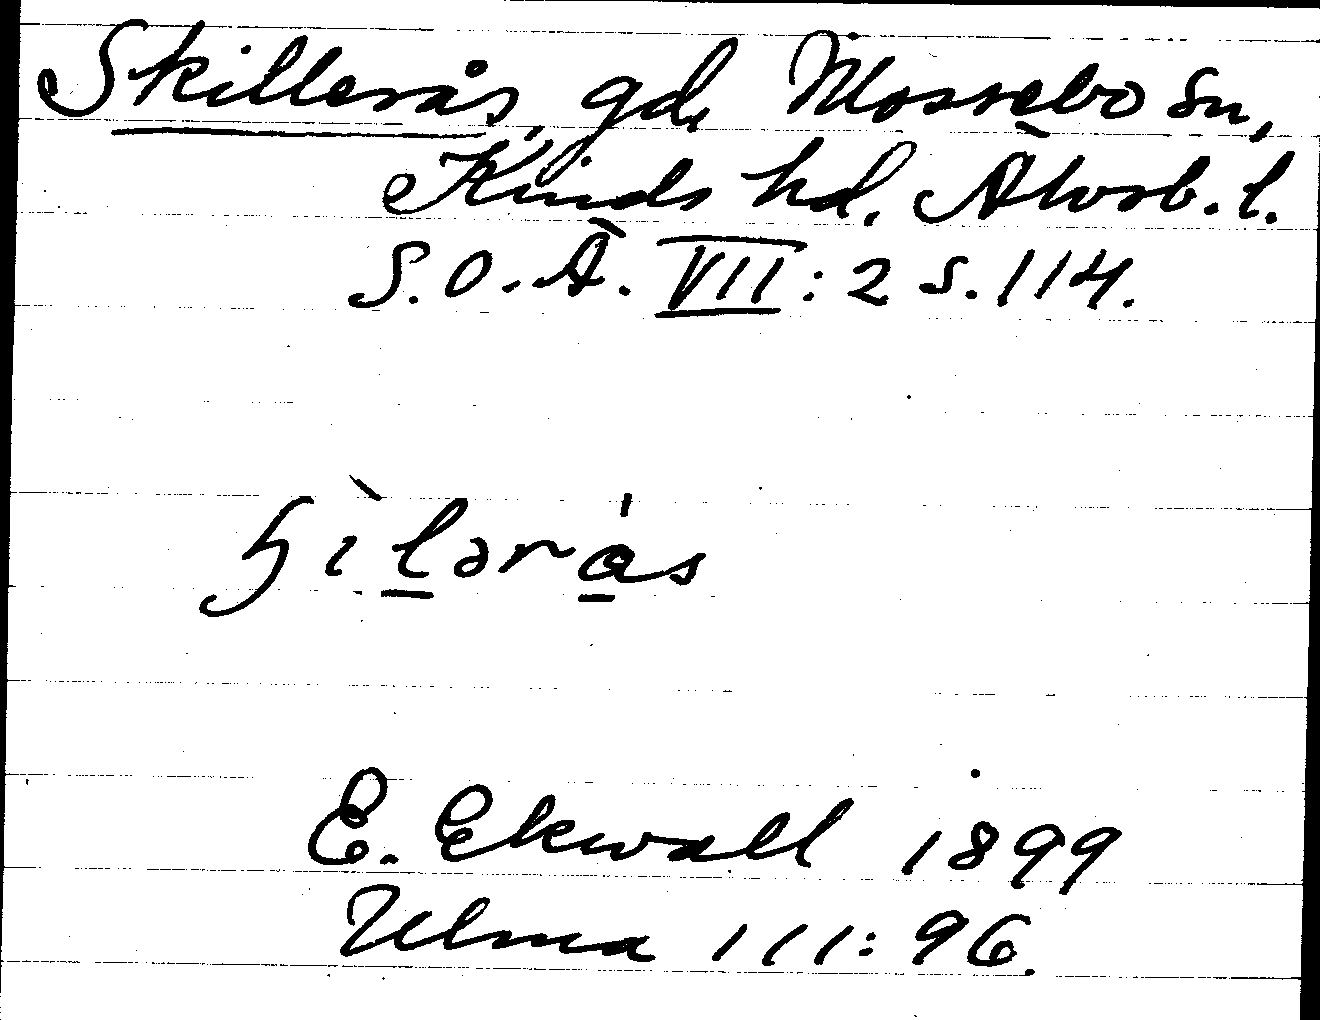 Skillerås, gd, Mossebo sn,
Kinds hd. Älvsb. l.
S.O.Ä. VII : 2 s. 114.
ɧìlərås
E. Ekwall 1899
Ulma 111: 96.